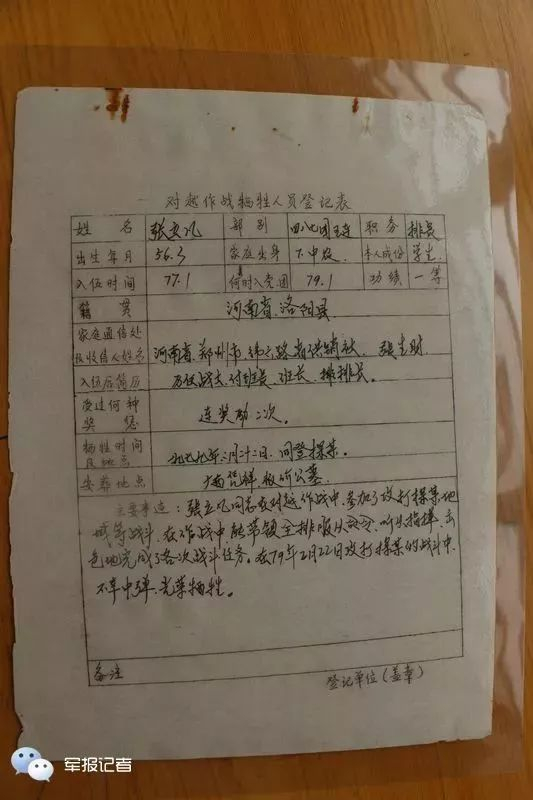 对越作战牺牲人员登记表
姓名 张立凡 部别 四八七团五连 职务 排长
出生年月 56.3 家庭出身 下中农 本人成份 学生
入伍时间 77.1 何时入党团 79.1 功绩 一等
籍贯 河南省洛阳县
家庭通信处
及收信人姓名 河南省郑州市纬六路省供销社 张生财
入伍后简历 历任战士、付班长、班长、排长。
受过何种
奖惩 连奖励二次。
牺牲时间
及地点 一九七九年二月二十二日、同登探某。
安葬地点 广西凭祥板价公墓
主要事迹：张立凡同志在对越作战中,参加了攻打探某地
域等战斗,在作战中能带领全排服从命令,听从指挥,出
色地完成了各次战斗任务。在79年2月22日攻打探某的战斗中
不幸中弹,光荣牺牲。
备注
登记单位(盖章)
军报记者